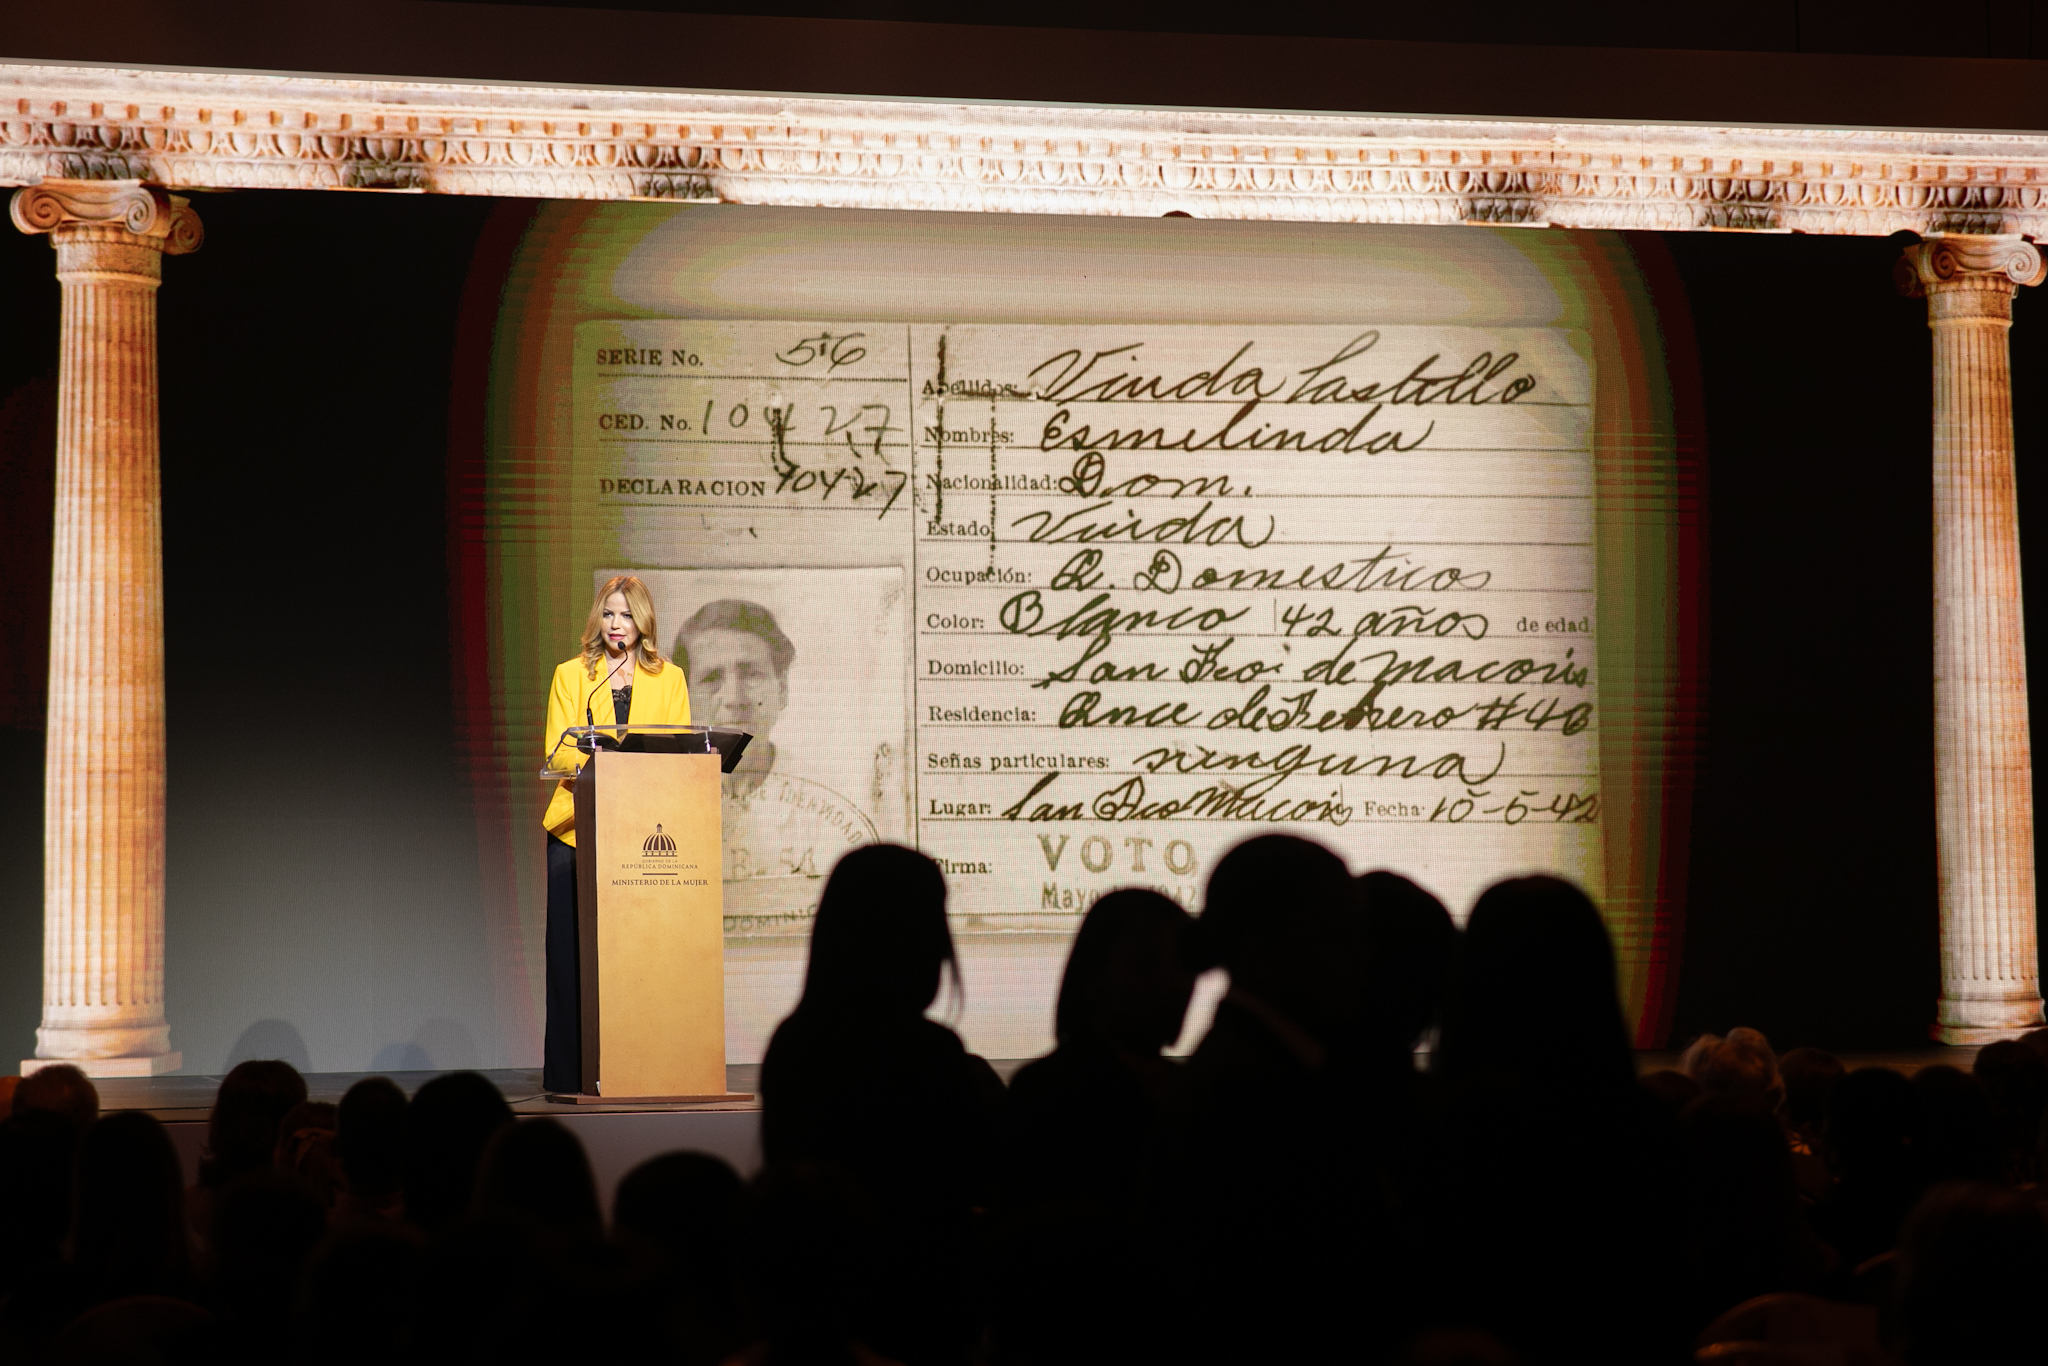 SERIE No. 56
CED. No. 10427
DECLARACION 10427
Apellidos: Viuda Castillo
Nombres: Esmelinda
Nacionalidad: Dom.
Estado Viuda
Ocupación: Q. Domesticos
Color: Blanco 42 años de edad.
Domicilio: San Fco. de Macoris
Residencia: Once de Febrero #46
Señas particulares: ninguna
Lugar: San Fco Macoris Fecha: 10-5-42
Firma: VOTO
Mayo 1942
DE IDENTIDAD
GOBIERNO DE LA
REPÚBLICA DOMINICANA
MINISTERIO DE LA MUJER